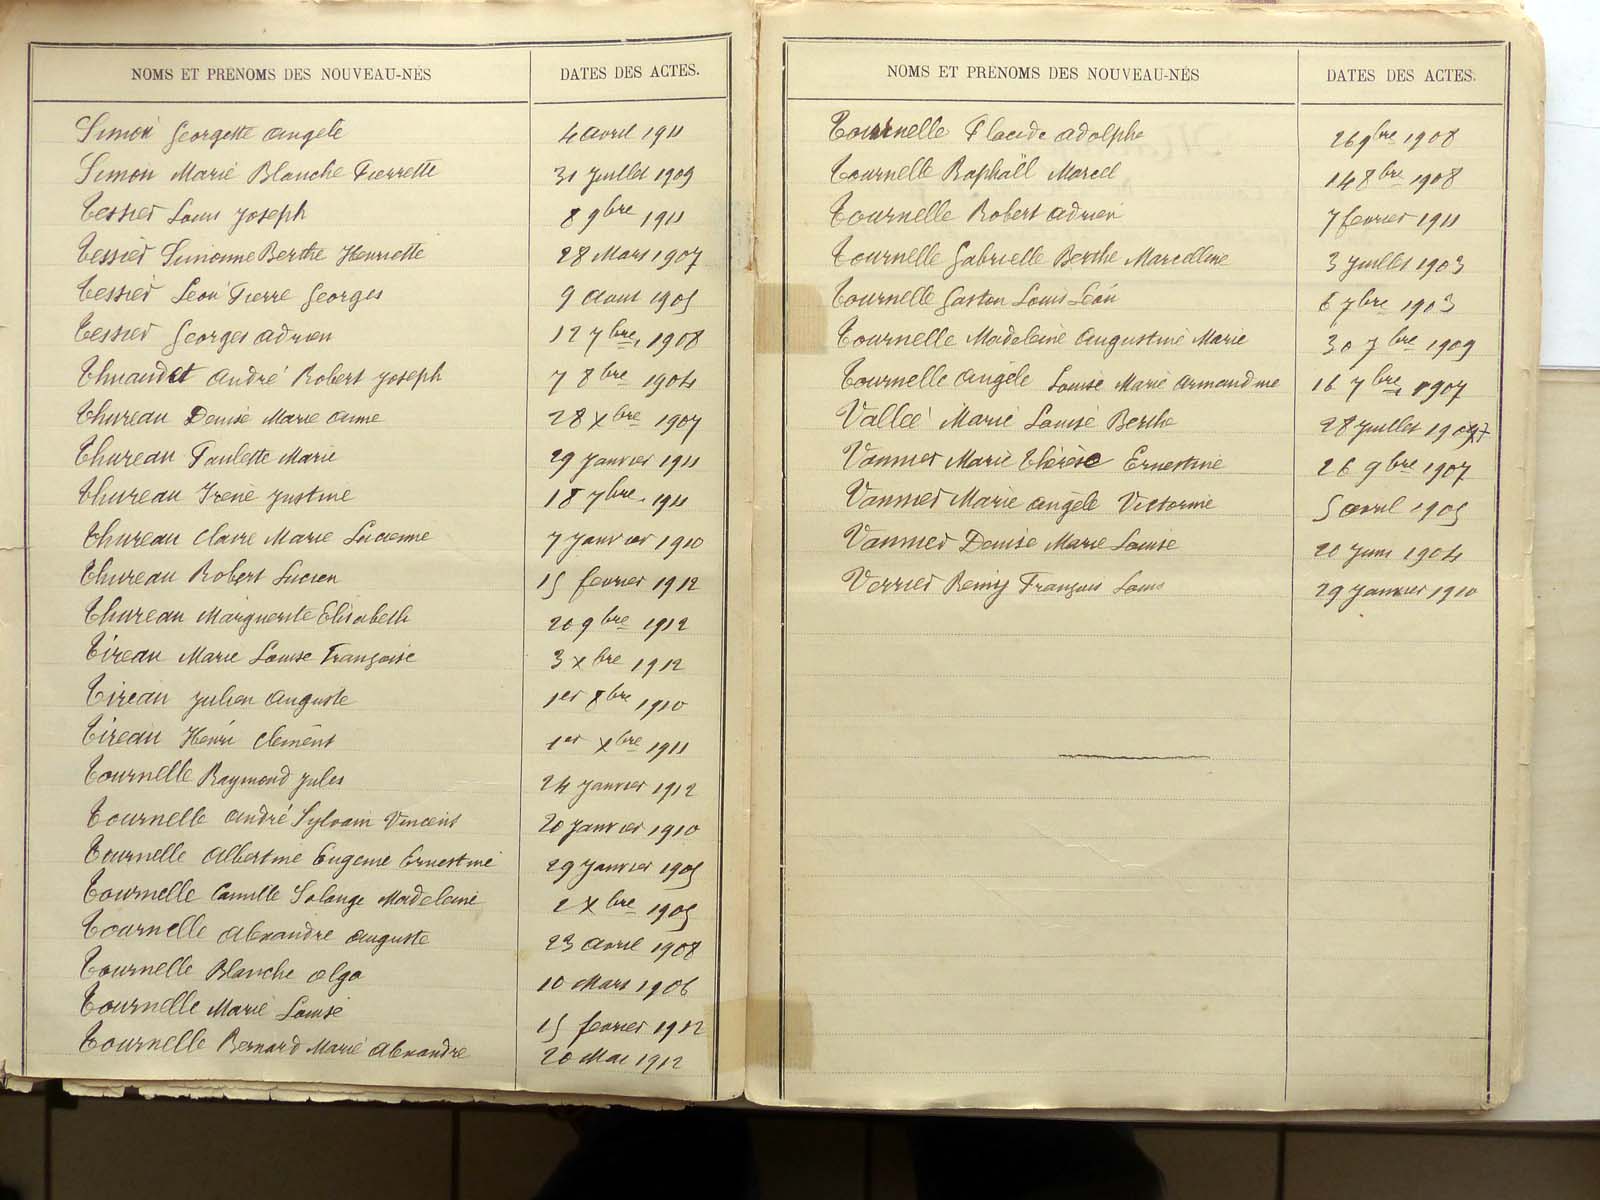 NOMS ET PRÉNOMS DES NOUVEAU-NÉS DATES DES ACTES.
Simon Georgette Angele 4 avril 1911
Simon Marie Blanche Pierrette 31 Juillet 1909
Tessier Louis Joseph 8 9bre 1911
Tessier Simonne Berthe Henriette 28 Mars 1907
Tessier Léon Pierre Georges 9 Aout 1905
Tessier Georges Adrien 12 7bre 1908
André Robert Joseph 7 8bre 1904
Thureau Denise Marie Anne 28 xbre 1907
Thureau Paulette Marie 29 Janvier 1911
Thureau Irène Justine 18 7bre 1911
Thureau Claire Marie Lucienne 7 Janvier 1910
Thureau Robert Lucien 15 février 1912
Thureau Marguerite Elisabeth 20 9bre 1912
Tireau Marie Louise Françoise 3 xbre 1912
Tireau Julien Auguste 1er 8bre 1910
Tireau Henri Clément 1er xbre 1911
Tournelle Raymond Jules 24 Janvier 1912
Tournelle André Sylvain Vincent 20 Janvier 1910
Tournelle Albertine Eugenie Ernestine 29 Janvier 1905
Tournelle Camille Solange Madeleine 2 xbre 1905
Tournelle Alexandre Auguste 23 avril 1908
Tournelle Blanche Olga 10 Mars 1906
Tournelle Marie Louise 15 février 1912
Tournelle Bernard Marie Alexandre 20 Mai 1912
NOMS ET PRÉNOMS DES NOUVEAU-NÉS DATES DES ACTES.
Tournelle Placide Adolphe 26 9bre 1908
Tournelle Raphaël Marcel 14 8bre 1908
Tournelle Robert Adrien 7 février 1911
Tournelle Gabrielle Berthe Marcelline 3 Juillet 1903
Tournelle Gaston Louis Léon 6 7bre 1903
Tournelle Madeleine Augustine Marie 30 7bre 1909
Tournelle Angèle Louise Marie Armandine 16 7bre 1907
Vallée Marie Louise Berthe 28 Juillet
Vannier Marie Thérèse Ernestine 26 9bre 1907
Vannier Marie Angèle Victorine 5 avril 1905
Vannier Denise Marie Louise 20 Juin 1904
Verrier Remy François Louis 29 Janvier 1910